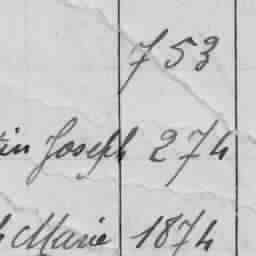 753
Joseph 274
Marie 1874